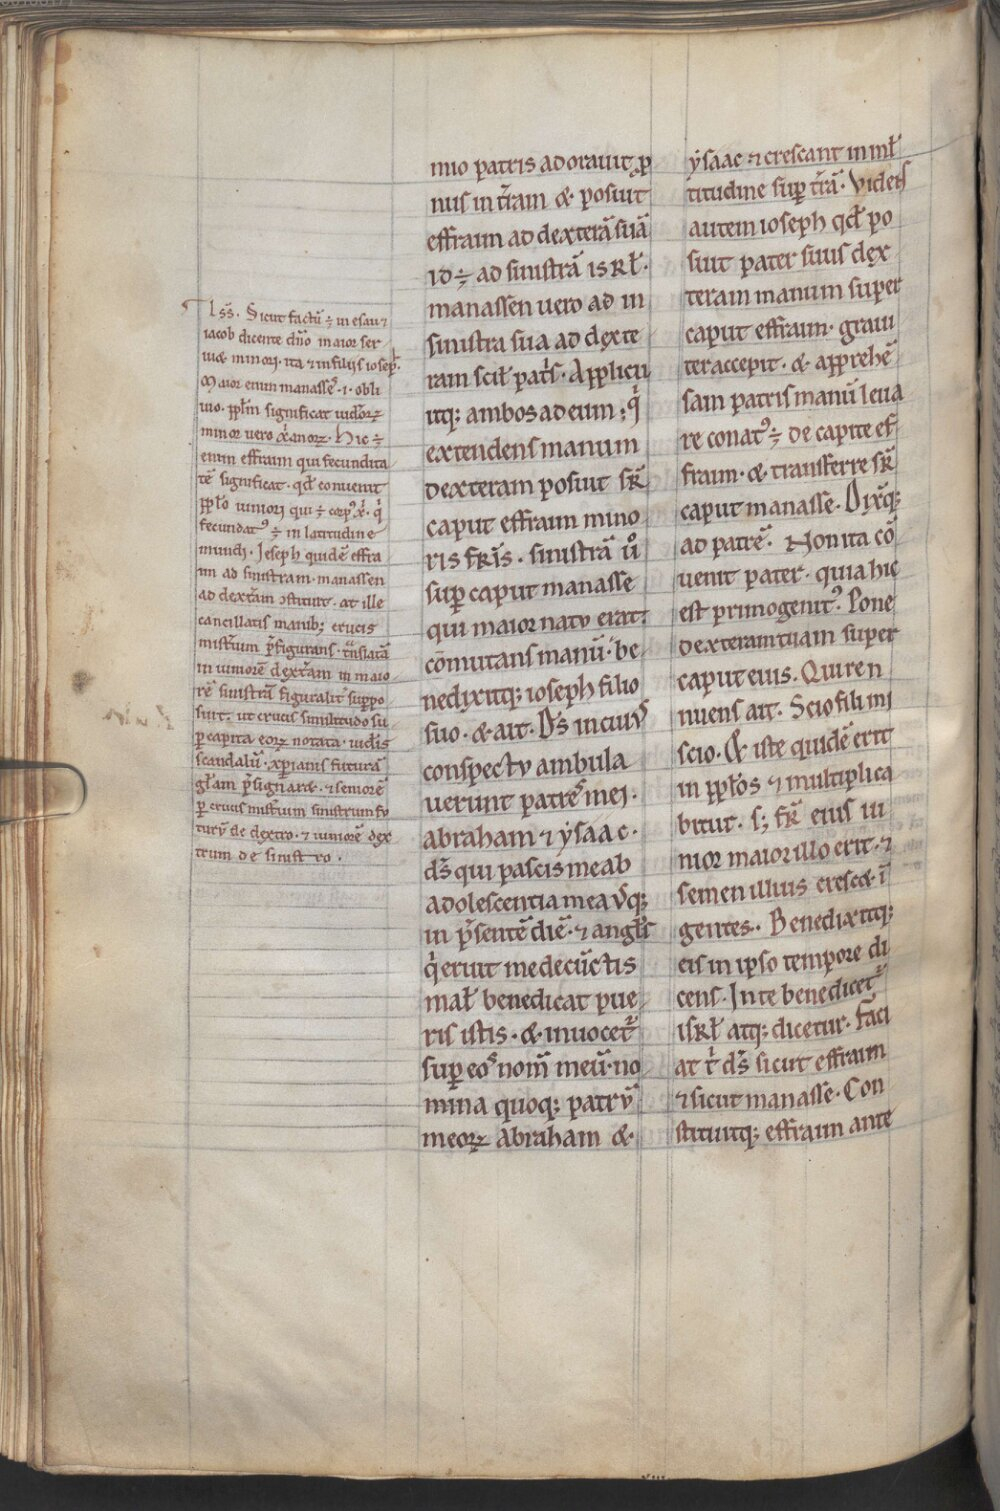 Iss̄. Sicut factū ÷ in esau ⁊
iacob dicente dn̄o maior ser
uiet minori. ita ⁊ in filiis iosep̄h.
Maior enim manasse᷒. i. obli
uio. pp̄lm significat iudeoꝝ
minor uero xp̄ianoꝝ. Hic ÷
enim effraim qui fecundita
tē significat. qd̄ conuenit
pp̄lo iuniori qui ÷ corp᷒ xp̄i. qⁱ
fecundat᷒ ÷ in latitudine
mundi. Ioseph quidē effra
im ad sinistram. manassen
ad dext̄am ↄstituit. at ille
cancellatis manib; crucis
mist̄ium p̄figurans. t̄nslatā
in iuniorē dext̄am in maio
rē sinistrā figuralit̄ suppo
suit. ut crucis similitudo su
ꝑ capita eoꝝ notata. iudeis
scandalū. xp̄ianis futurā
gl̄am p̄signaret. ⁊ seniorē
ꝑ crucis mist̄ium sinistrum fu
turū de dextro. ⁊ iuniorē dex
trum de sinistro.
mio patris adorauit ꝓ
nus in t̄ram & posuit
effraim ad dexterā suā
id ÷ ad sinistrā isrl̄.
manassen uero ad in
sinistra sua ad dexte
ram scil̄ pat̄s. Applicu
itq; ambos ad eum; qⁱ
extendens manum
dexteram posuit sr̄
caput effraim mino
ris fr̄is. sinistrā ů
suꝑ caput manasse
qui maior natu erat.
cōmutans manū. be
nedixitq; ioseph filio
suo. & ait. Ds̄ in cui᷒
conspectu ambula
uerunt patres mei.
abraham ⁊ ysaac.
ds̄ qui pascis me ab
adolescentia mea usq;
in p̄sentē diē. ⁊ angl̄s
qⁱ eruit me de cūctis
mal̄ benedicat pue
ris istis. & inuocet᷑
suꝑ eos nom̄ meū. no
mina quoq; patrū
meoꝝ Abraham &
ysaac ⁊ crescant in ml̄
titudine suꝑ t̄rā. Videns
autem ioseph qd̄ po
suit pater suus dex
teram manum super
caput effraim. graui
ter accepit. & apprehē
sam patris manū leua
re conat᷒ ÷ de capite ef
fraim. & transferre sr̄
caput manasse. Dixitq;
ad patrē. Non ita cō
uenit pater. quia hic
est primogenit᷒. Pone
dexteram tuam super
caput eius. Qui ren
nuens ait. Scio fili mi
scio. Et iste quidē erit
in pp̄los ⁊ multiplica
bitur. s; fr̄ eius iu
nior maior illo erit. ⁊
semen illius crescet ī
gentes. Benedixitq;
eis in ipso tempore di
cens. In te benedicet᷑
isrl̄ atq; dicetur. Faci
at tⁱ ds̄ sicut effraim
⁊ sicut manasse. Con
stituitq; effraim ante